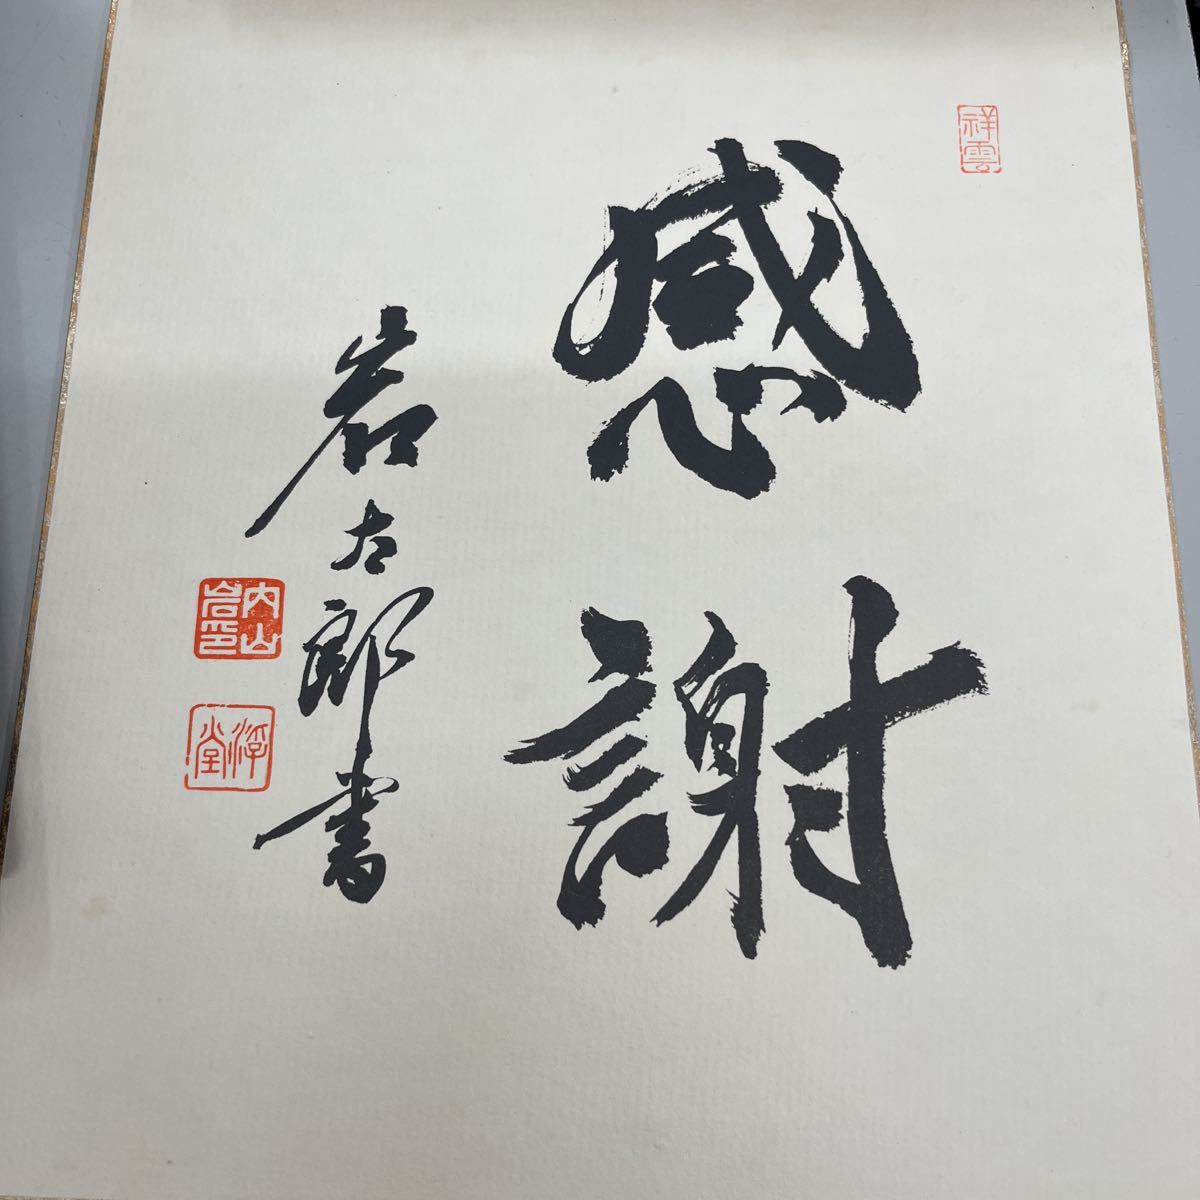 祥雲
感謝
岩太郎書
内山岩印
浮堂